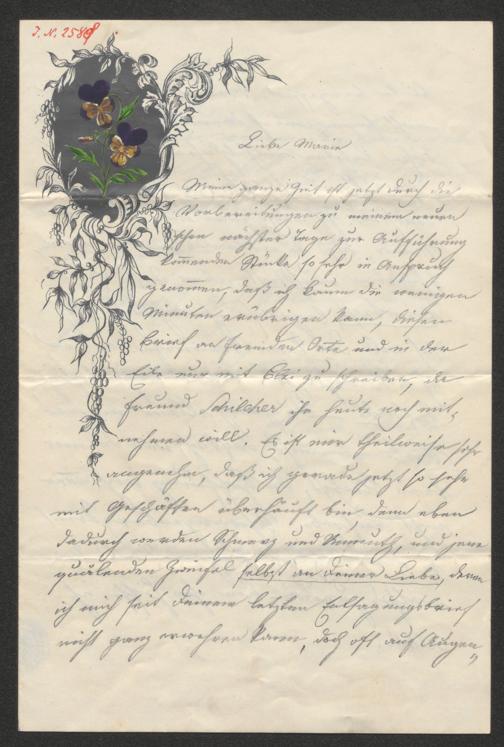 J. N. 2588
Liebe Marie
Meine ganze Zeit ist jetzt durch die
Vorbereitungen zu meinem neuen
schon nächster Tage zur Aufführung
kommenden Stücke so sehr in Anspruch
genommen, daß ich kaum die wenigen
Minuten erübrigen kann, diesen
Brief an fremdem Orte und in der
Eile nur mit Blei zu schreiben, da
Freund Schilcher ihn heute noch mit-
nehmen will. Es ist mir theilweise sehr
angenehm, daß ich gerade jetzt so sehr
mit Geschäften überhäuft bin, denn eben
dadurch werden Schmerz und Unmuth, und jene
quälenden Zweifel selbst an Deiner Liebe, deren
ich mich seit Deinem letzten Entsagungsbrief
nicht ganz erwehren kann, doch oft auf Augen